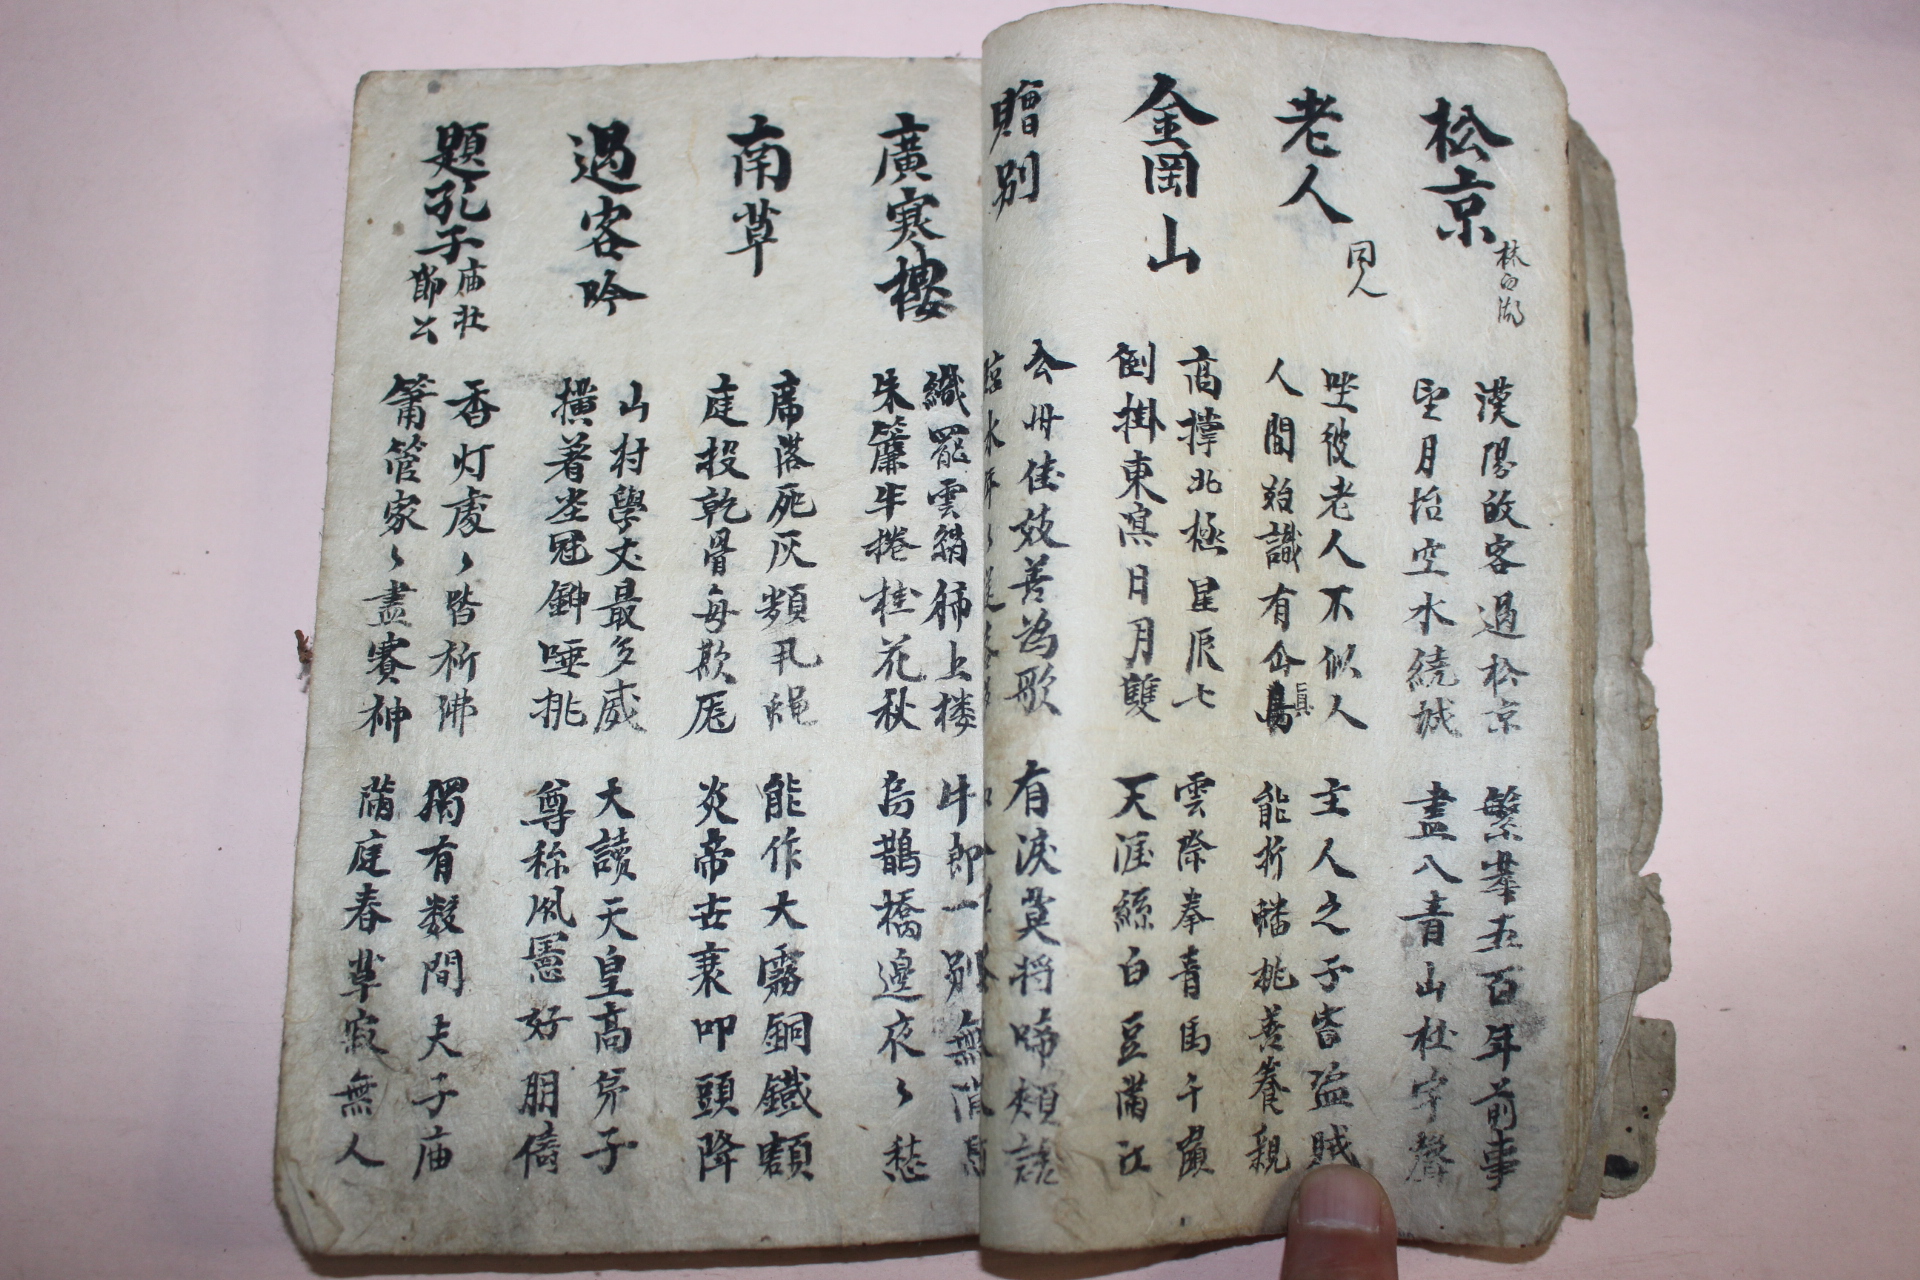 松京 林白湖
漢陽故客過松京 繁華五百年前事
望月坮空水繞城 盡入青山杜宇聲
老人 同人
坐彼老人不似人 主人之子皆盜賊
人間始識有仚眞 能折蟠桃善養親
金岡山
高撑北極星辰七 雲際拳青馬千
倒掛東溟日月雙 天涯絲白豆滿江
贈別
公州佳妓善爲歌 有淚莫將啼頰
臨水
廣寒樓
織罷雲綃獨上楼 牛郎一別無消
朱簾半捲桂花秋 烏鵲橋邊夜〻愁
南草
席落死灰類乳蝇 能作大霧銅鐵額
庭投乾骨每欺厖 炎帝古裏叩頭降
過客吟
山村學丈最多威 大讀天皇高弟子
横着尘冠鉀唾挑 尊称風憲好朋儔
題孔子庙壮節公
香灯處〻皆祈佛 獨有数間夫子庙
簫管家〻盡賽神 滿庭春草寂無人